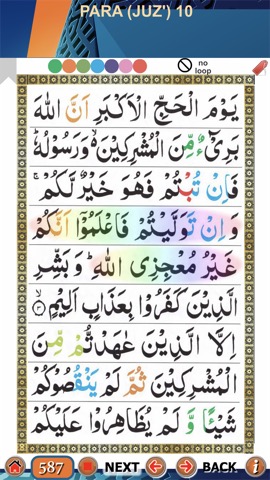 PARA (JUZ') 10
no
loop
يَوْمَ الْحَجِّ الْاَكْبَرِ اَنَّ اللّٰهَ
بَرِیْٓءٌ مِّنَ الْمُشْرِكِیْنَ ۙ۬ وَ رَسُوْلُهٗ ؕ
فَاِنْ تُبْتُمْ فَهُوَ خَیْرٌ لَّكُمْ ۚ
وَ اِنْ تَوَلَّیْتُمْ فَاعْلَمُوْۤا اَنَّكُمْ
غَیْرُ مُعْجِزِی اللّٰهِ ؕ وَ بَشِّرِ
الَّذِیْنَ كَفَرُوْا بِعَذَابٍ اَلِیْمٍ ۙ۳
اِلَّا الَّذِیْنَ عٰهَدْتُّمْ مِّنَ
الْمُشْرِكِیْنَ ثُمَّ لَمْ یَنْقُصُوْكُمْ
شَیْـًٔا وَّ لَمْ یُظَاهِرُوْا عَلَیْكُمْ
587 NEXT BACK i